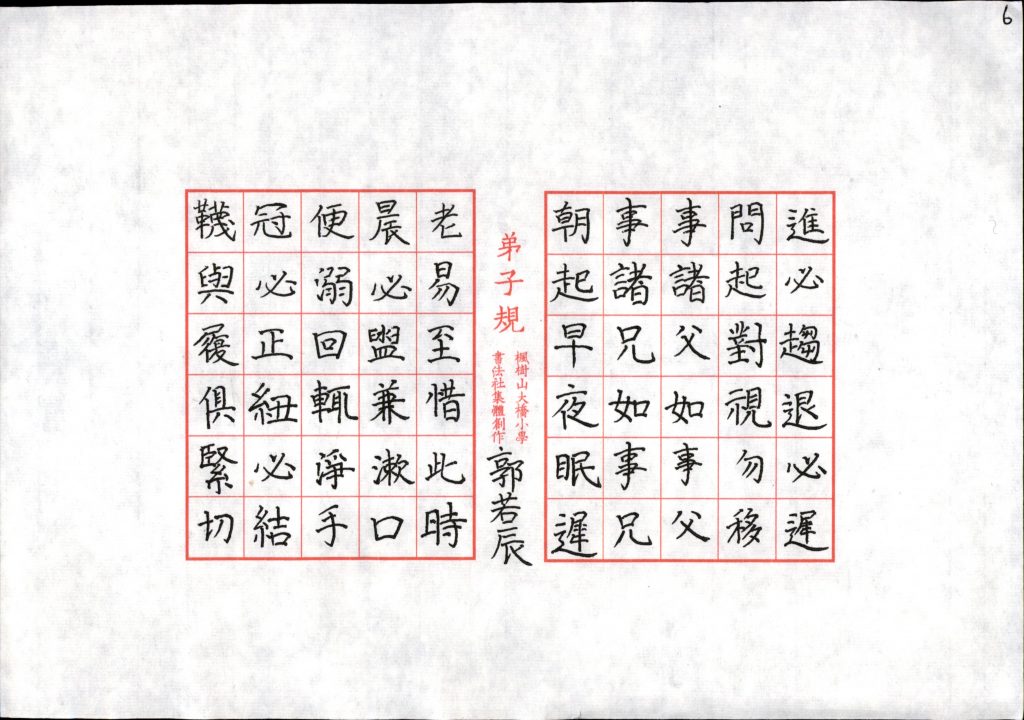 6
進必趨退必遲
問起對視勿移
事諸父如事父
事諸兄如事兄
朝起早夜眠遲
弟子規
楓樹山大橋小學
書法社集體創作
郭若辰
老易至惜此時
晨必盥兼漱口
便溺回輒淨手
冠必正紐必結
韈與履俱緊切